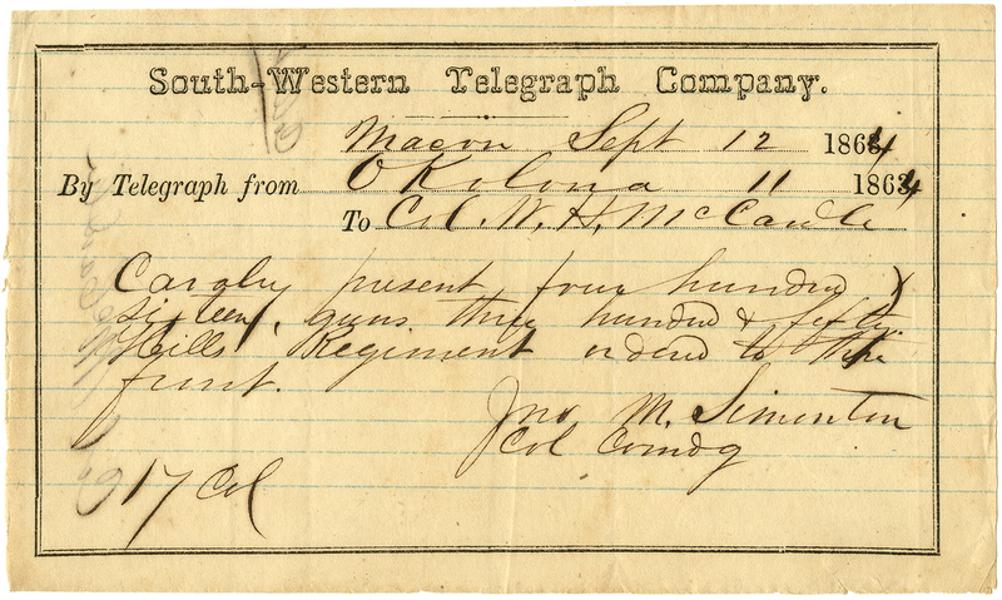 South-Western Telegraph Company.
Macon Sept 12 1864
By Telegraph from OKolona 11 1864
To Col W. H. McCardle
Cavalry present four hundred
sixteen, guns three hundred & fifty.
Hills Regiment ordered to the
front.
Jno M. Simonton
Col Comdg
17 Col